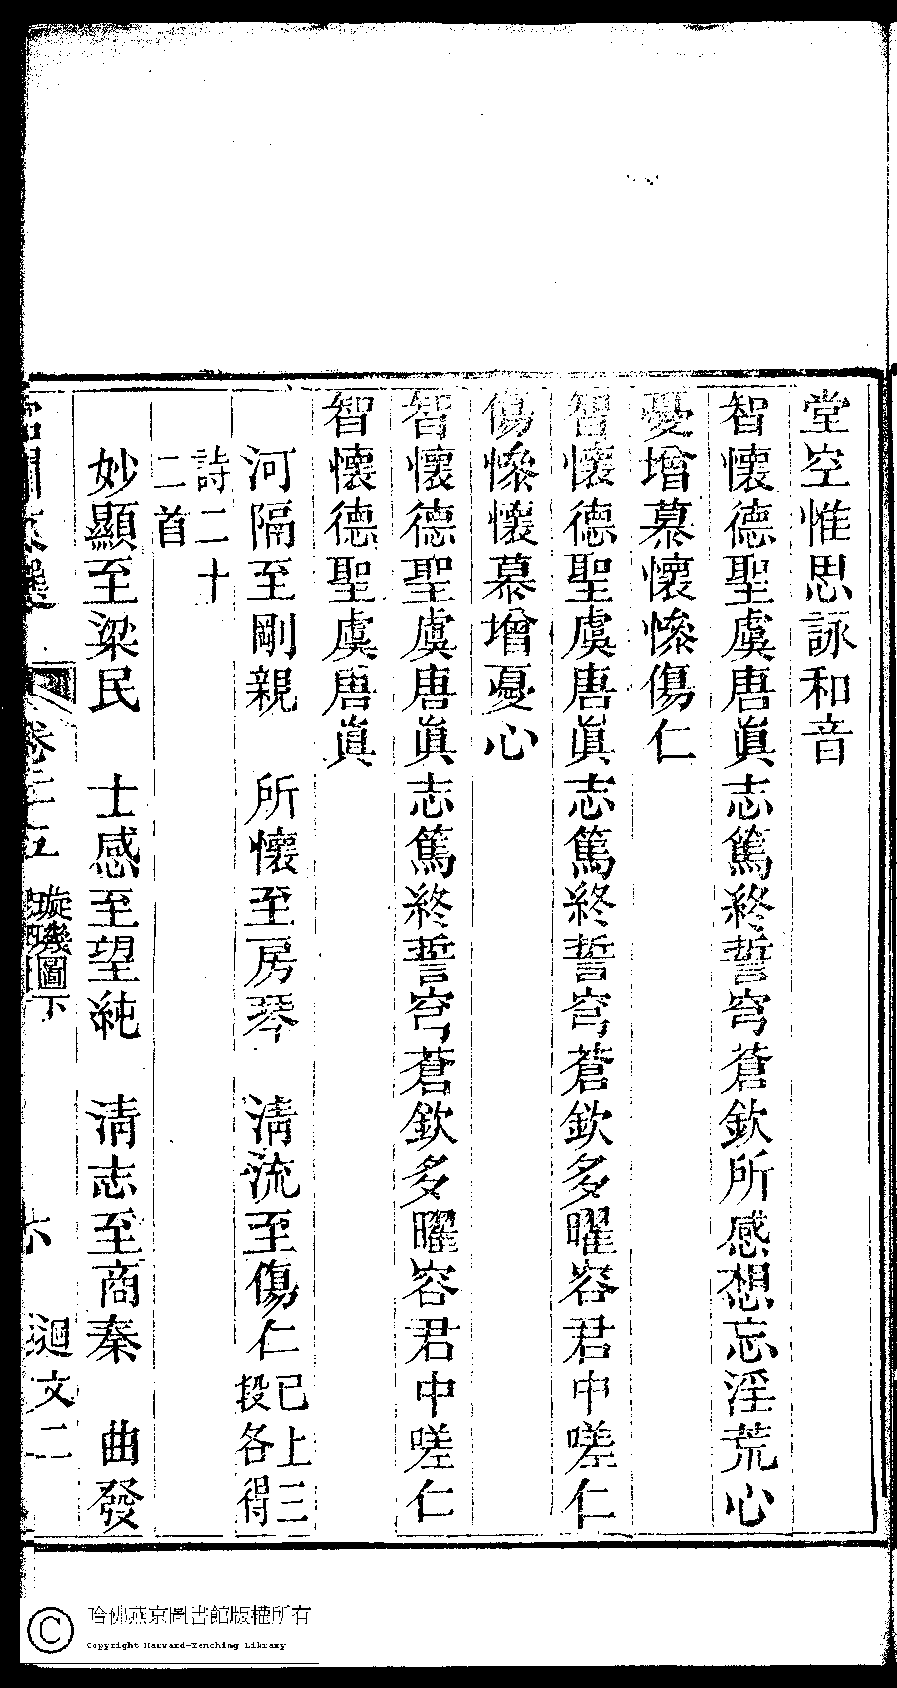 堂空惟思詠和音
智懷德聖虞唐眞志篤終誓穹蒼欽所感想忘淫荒心
憂增慕懷慘傷仁
智懷德聖虞唐眞志篤終誓穹蒼欽多曜容君中嗟仁
傷慘懷慕增憂心
智懷德聖虞唐眞志篤終誓穹蒼欽多曜容君中嗟仁
智懷德聖虞唐眞
河隔至剛親　所懷至房琴　淸流至傷仁
已上三
段各得
詩二十
二首
妙顯至梁民　士感至望純　淸志至商秦　曲發
卷二五
璇璣圖下
六
迴文二
哈佛燕京圖書館版權所有
Copyright Harvard-Yenching Library